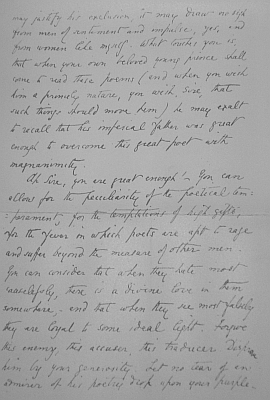 may justify his exclusion, it may draw no sigh
from men of sentiment and impulse, yes, and
from women like myself. What touches you is,
that when your own beloved young prince shall
come to read these poems (and when you wish
him a princely nature, you wish, Sire, that
such things should move him) he may exult
to recall that his imperial father was great
enough to overcome this great poet with
magnanimity.
Ah Sire, you are great enough! You can
allow for the peculiarity of the poetical tem-
perament, for the temptations of high gifts,
for the fever in which poets are apt to rage
and suffer beyond the measure of other men.
You can consider that when they hate most
causelessly, there is a divine love in them
somewhere, and that when they see most falsely
they are loyal to some ideal light. Forgive
this enemy, this accuser, this traducer. Disarm
him by your generosity. Let no tear of an
admirer of his poetry drop upon your purple.